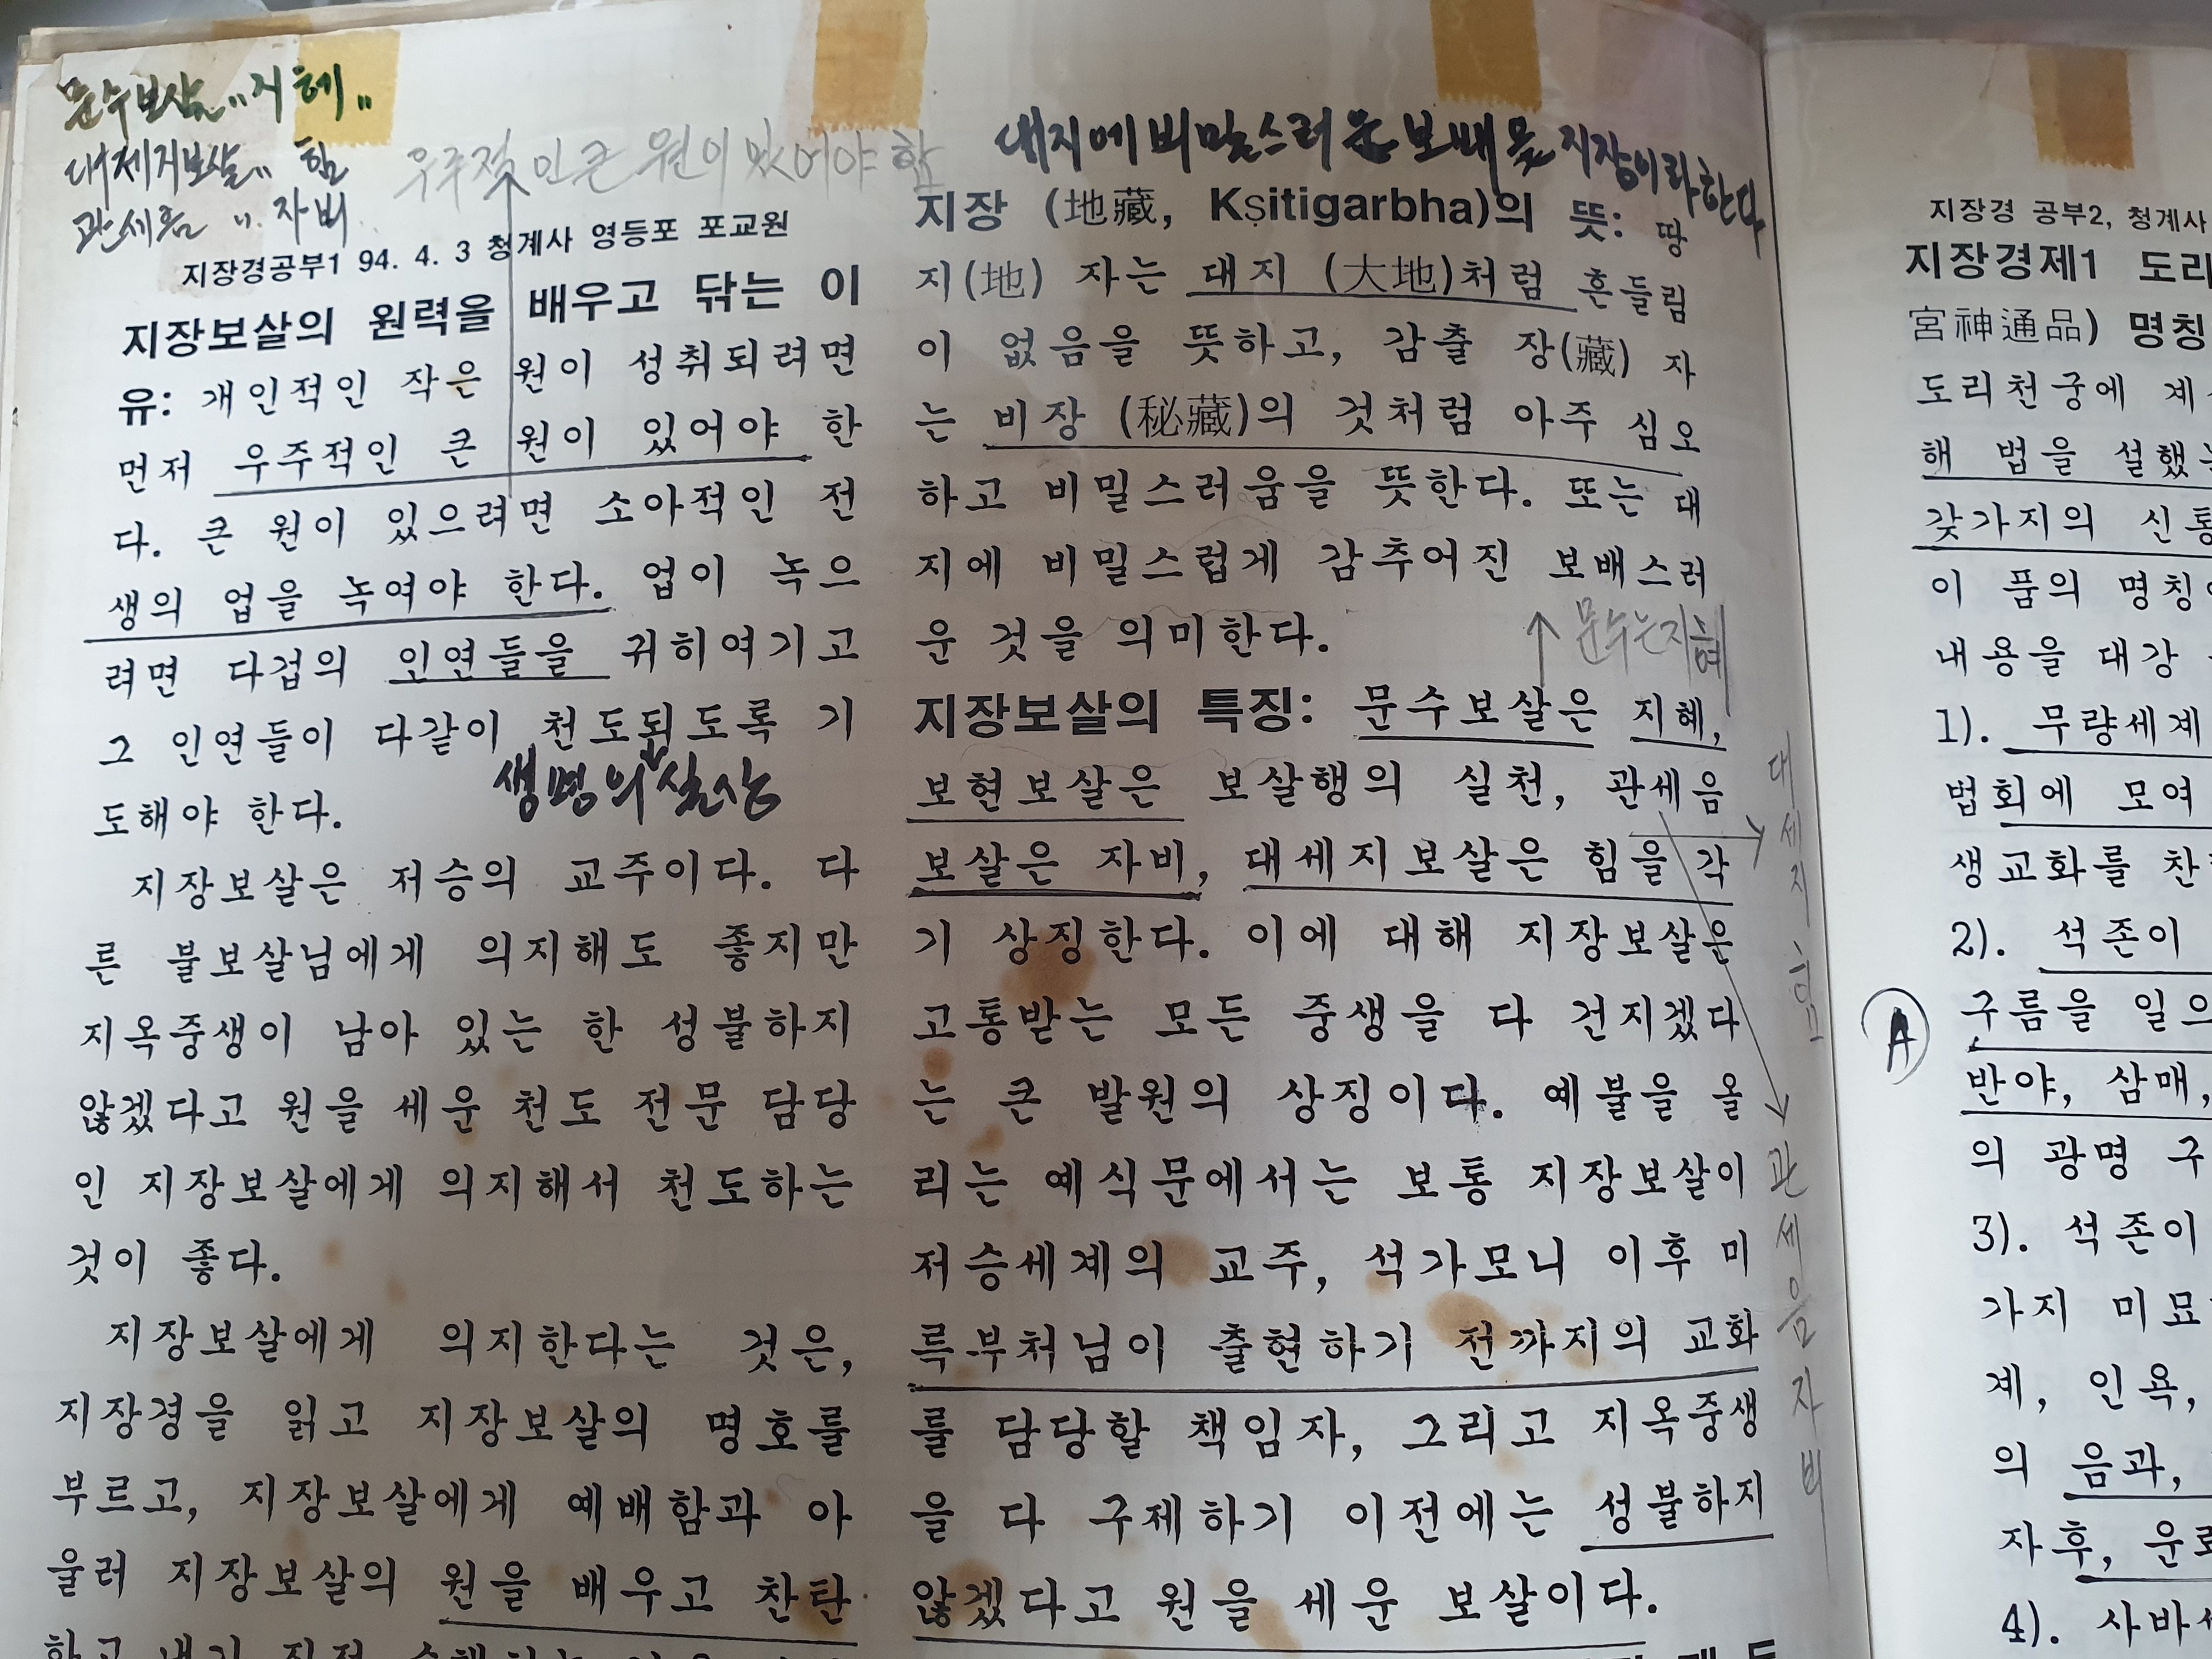 문수보살 〃 지혜 〃
대제지보살 〃 힘
관세음 〃 자비
우주적인 큰 원이 있어야 함
지장경공부1 94. 4. 3 청계사 영등포 포교원
지장보살의 원력을 배우고 닦는 이
유: 개인적인 작은 원이 성취되려면
먼저 우주적인 큰 원이 있어야 한
다. 큰 원이 있으려면 소아적인 전
생의 업을 녹여야 한다. 업이 녹으
려면 다겁의 인연들을 귀히여기고
그 인연들이 다같이 천도되도록 기
생명의 실상
도해야 한다.
지장보살은 저승의 교주이다. 다
른 불보살님에게 의지해도 좋지만
지옥중생이 남아 있는 한 성불하지
않겠다고 원을 세운 천도 전문 담당
인 지장보살에게 의지해서 천도하는
것이 좋다.
지장보살에게 의지한다는 것은,
지장경을 읽고 지장보살의 명호를
부르고, 지장보살에게 예배함과 아
울러 지장보살의 원을 배우고 찬탄
대지에 비밀스러운 보배못 지장이라한다
지장 (地藏, Kṣitigarbha)의 뜻: 땅
지(地) 자는 대지 (大地)처럼 흔들림
이 없음을 뜻하고, 감출 장(藏) 자
는 비장 (秘藏)의 것처럼 아주 심오
하고 비밀스러움을 뜻한다. 또는 대
지에 비밀스럽게 감추어진 보배스러
운 것을 의미한다.
문수는지혜
지장보살의 특징: 문수보살은 지혜,
보현보살은 보살행의 실천, 관세음
보살은 자비, 대세지보살은 힘을 각
기 상징한다. 이에 대해 지장보살은
고통받는 모든 중생을 다 건지겠다
는 큰 발원의 상징이다. 예불을 올
리는 예식문에서는 보통 지장보살이
저승세계의 교주, 석가모니 이후 미
륵부처님이 출현하기 전까지의 교화
를 담당할 책임자, 그리고 지옥중생
을 다 구제하기 이전에는 성불하지
않겠다고 원을 세운 보살이다.
대세지 힘
관세음 자비
지장경 공부2, 청계사
지장경제1 도리
宮神通品) 명칭
도리천궁에 계
해 법을 설했
갖가지의 신통
이 품의 명칭
내용을 대강
1). 무량세계
법회에 모여
생교화를 찬
2). 석존이
A
구름을 일으
반야, 삼매,
의 광명 구
3). 석존이
가지 미묘
계, 인욕,
의 음과,
자후, 운
4). 사바